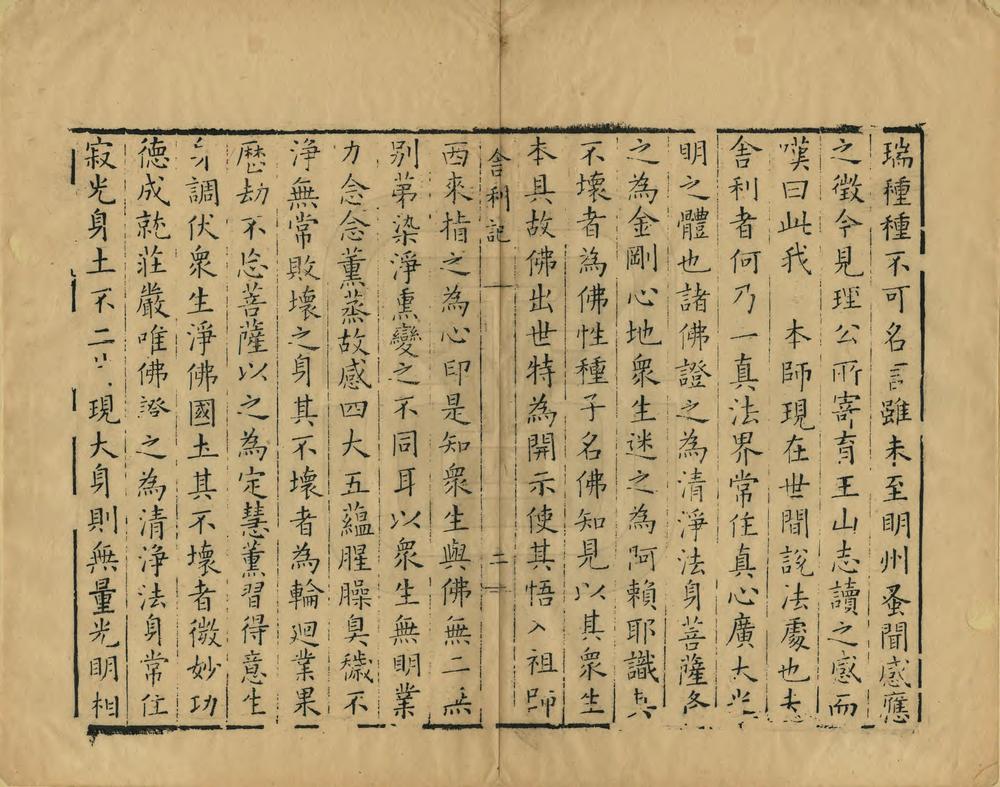 瑞種種不可名言雖未至明州蚤聞感應
之徵今見理公所寄育王山志讀之感而
嘆曰此我　本師現在世間說法處也夫
舍利者何乃一真法界常住真心廣大光
明之體也諸佛證之為清淨法身菩薩各
之為金剛心地衆生迷之為阿賴耶識其
不壞者為佛性種子名佛知見以其衆生
本具故佛出世特為開示使其悟入祖師
舍利記　二
西來指之為心印是知衆生與佛無二無
别第染淨熏變之不同耳以衆生無明業
力念念薰蒸故感四大五蘊腥臊臭穢不
淨無常敗壞之身其不壞者為輪廻業果
歷劫不忘菩薩以之為定慧薰習得意生
身調伏衆生淨佛國土其不壞者微妙功
德成就莊嚴唯佛證之為清淨法身常住
寂光身土不二現大身則無量光明相